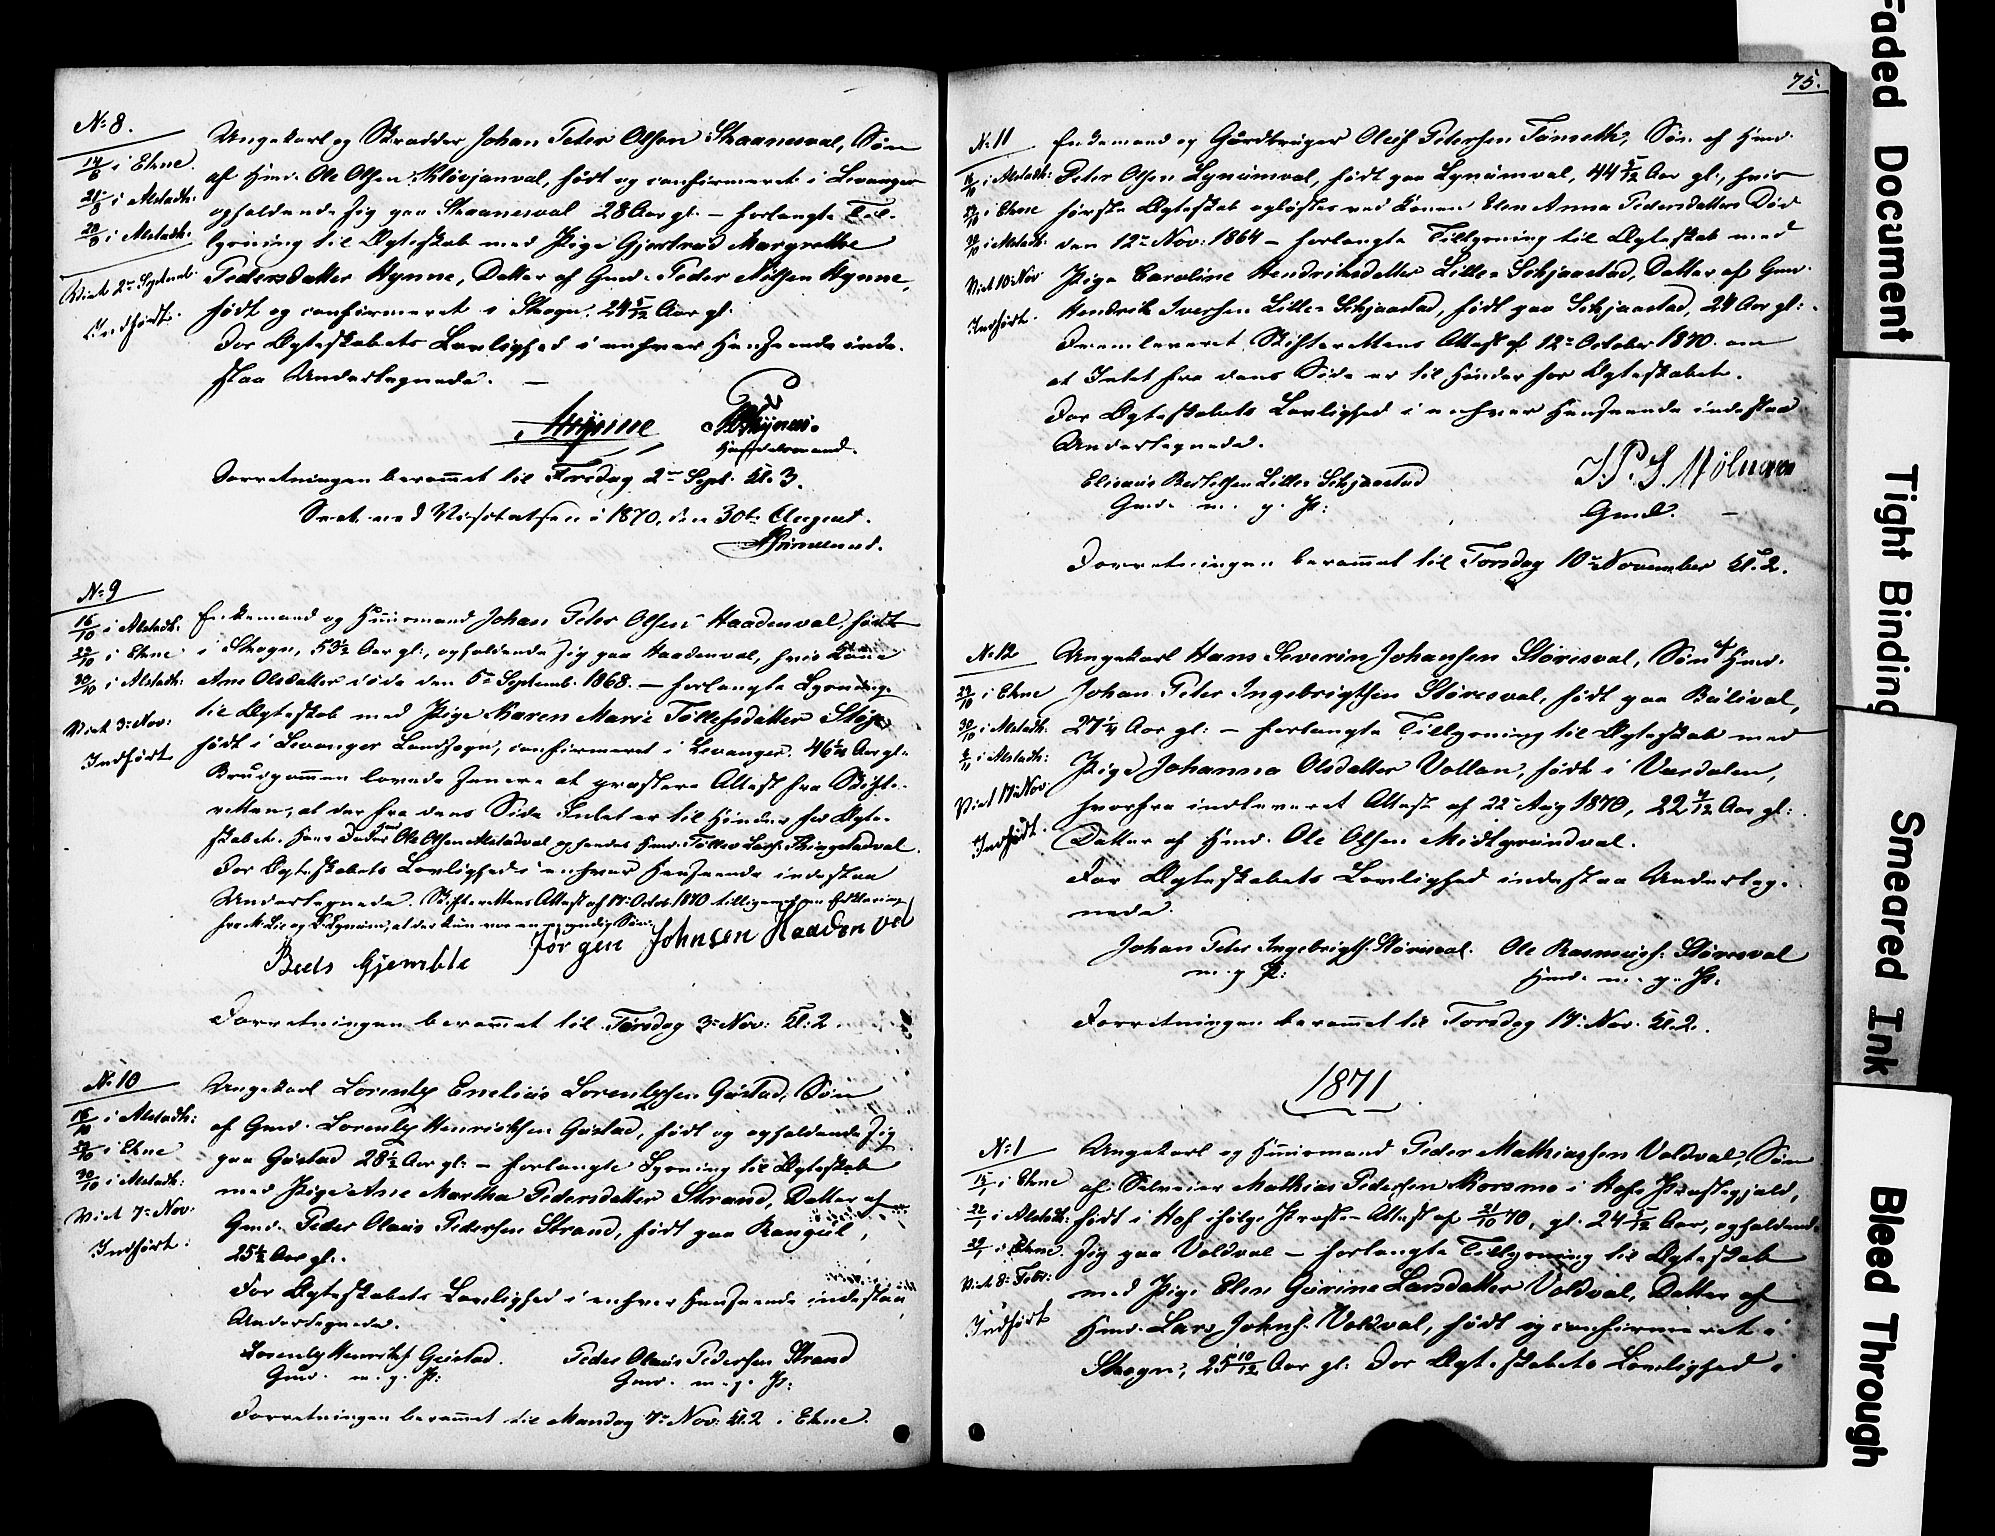 No 8.
14/8 i Ekne.
21/8 i Alstadh:
28/8 i Alstadh:
Viet 2den Septemb.
Indført.
Ungekarl og Skrædder Johan Peter Olsen Skaanesval, Søn
af Hmd. Ole Olsen Kløvjanval, født og confirmeret i Levanger
opholdende sig paa Skaanesval 28 Aar gl. – forlangte Til-
lysning til Ægteskab med Pige Gjertrud Margrethe
Pedersdatter Hynne, Datter af Gmd. Peder Nilsen Hynne,
født og confirmeret i Skogn, 24 5/12 Aar gl.
For Ægteskabets Lovlighed i enhver Henseende inde-
staa Undertegnede. –
Forretningen berammet til Torsdag 2den Sept. Kl. 3.
Seet ved Visitatsen i 1870, den 30te August.
No 9
16/10 i Alstadh:
23/10 i Ekne
30/10 i Alstadh:
Viet 3die Nov:
Indført.
Enkemand og Huusmand Johan Peter Olsen Haadenval, født
i Skogn, 53 1/2 Aar gl., opholdende sig paa Haadenval, hvis Kone
Ane Olsdatter døde den 5te Septemb. 1868. – forlangte Lysning
til Ægteskab med Pige Karen Marie Tollefsdatter
født i Levanger Landsogn, confirmeret i Levanger. 46 Aar gl.
Brudgommen lovede senere at præstere Attest fra Skifte-
retten, at der fra dens Side Intet er til Hinder for Ægte-
skabet. Hans Fader Ole Olsen Alstadval, hendes Hmd. Tollev Lars.
For Ægteskabets Lovlighed i enhver Henseende indestaa
Undertegnede. Skifterettens Attest af 17de Octob. 1870 tilligemed en Erklæring
Beds Gjemble Jørgen Johnsen Haadenval
Forretningen berammet til Torsdag 3die Nov: Kl: 2.
No 10
16/10 i Alstadh:
23/10 i Ekne
30/10 i Alstadh:
Viet 7de Nov.
Indført.
Ungekarl Lorents Emelius Lorentssen Gustad, Søn
af Gmd. Lorents Henriksen Gustad, født og opholdende sig
paa Gustad 28 1/2 Aar gl. – forlangte Lysning til Ægteskab
med Pige Ane Martha Pedersdatter Strand, Datter af
Gmd. Peder Olaus Pedersen Strand, født paa
25 1/2 Aar gl.
For Ægteskabets Lovlighed i enhver Henseende indestaa
Undertegnede.
Lorents Henriks. Gustad. Peder Olaus Pedersen Strand
Gmd. m. p. P: Gmd. m. p. P:
Forretningen berammet til Mandag 7de Nov: Kl. 2 i Ekne.
75.
No 11
16/10 i Alstadh:
23/10 i Ekne
30/10 i Alstadh:
Viet 10de Nov
Indført.
Enkemand og Gårdbruger Oleif Petersen Tømseth, Søn af Hmd.
Peter Olsen Lynumval, født paa Lynumval, 44 5/12 Aar gl., hvis
første Ægteskab opløstes ved Konen Elen Anna Pedersdatters Død
den 12te Nov: 1864 – forlangte Tillysning til Ægteskab med
Pige Caroline Hendriksdatter Lille-Skjaastad, Datter af Gmd.
Hendrik Iversen Lille-Skjaastad, født paa Skjaastad, 24 Aar gl:
Fremleveret Skifterettens Attest af 12te October 1870 om
at Intet fra dens Side er til Hinder for Ægteskabet.
For Ægteskabets Lovlighed i enhver Henseende indestaa
Undertegnede.
Eliseus Bertelsen Lille-Skjaastad
Gmd. m. p. P:
Gmd. –
Forretningen berammet til Torsdag 10de November Kl. 2.
No 12
23/10 i Ekne
30/10 i Alstadh:
6/11 i Alstadh:
Viet 17de Nov.
Indført.
Ungekarl Hans Severin Johansen Støresval, Søn af Hmd.
Johan Peter Ingebrigtsen Støresval, født paa
27 1/4 Aar gl: – forlangte Tillysning til Ægteskab med
Pige Johanna Olsdatter Vollan, født i Værdalen,
hvorfra indleveret Attest af 22de Aug 1870, 22 Aar gl:
Datter af Hmd. Ole Olsen Midtgrundval.
For Ægteskabets Lovlighed indestaa Underteg-
nede.
Johan Peter Ingebrigts. Støresval. Ole Rasmus. Støresval
m. p. P: Hmd. m. p. P.
Forretningen berammet til Torsdag 17de Nov. Kl. 2.
1871
No 1
15/1 i Ekne
22/1 i Alstadh:
29/1 i Ekne.
Viet 8de Febr:
Indført
Ungekarl og Huusmand Peder Mathiassen Voldval, Søn
af Selveier Mathias Pedersen Korsmo i Hofs Præstegjeld,
født i Hof ifølge Præste-Attest af 21/10 70, gl. 24 5/12 Aar, opholdende
sig paa Voldval – forlangte Tillysning til Ægteskab
med Pige Elen Gurine Larsdatter Voldval, Datter af
Hmd. Lars Johns. Voldval, født og confirmeret i
Skogn, 25 10/12 Aar gl: For Ægteskabets Lovlighed i
Faded Document
Tight Binding
Smeared Ink
Bleed Through